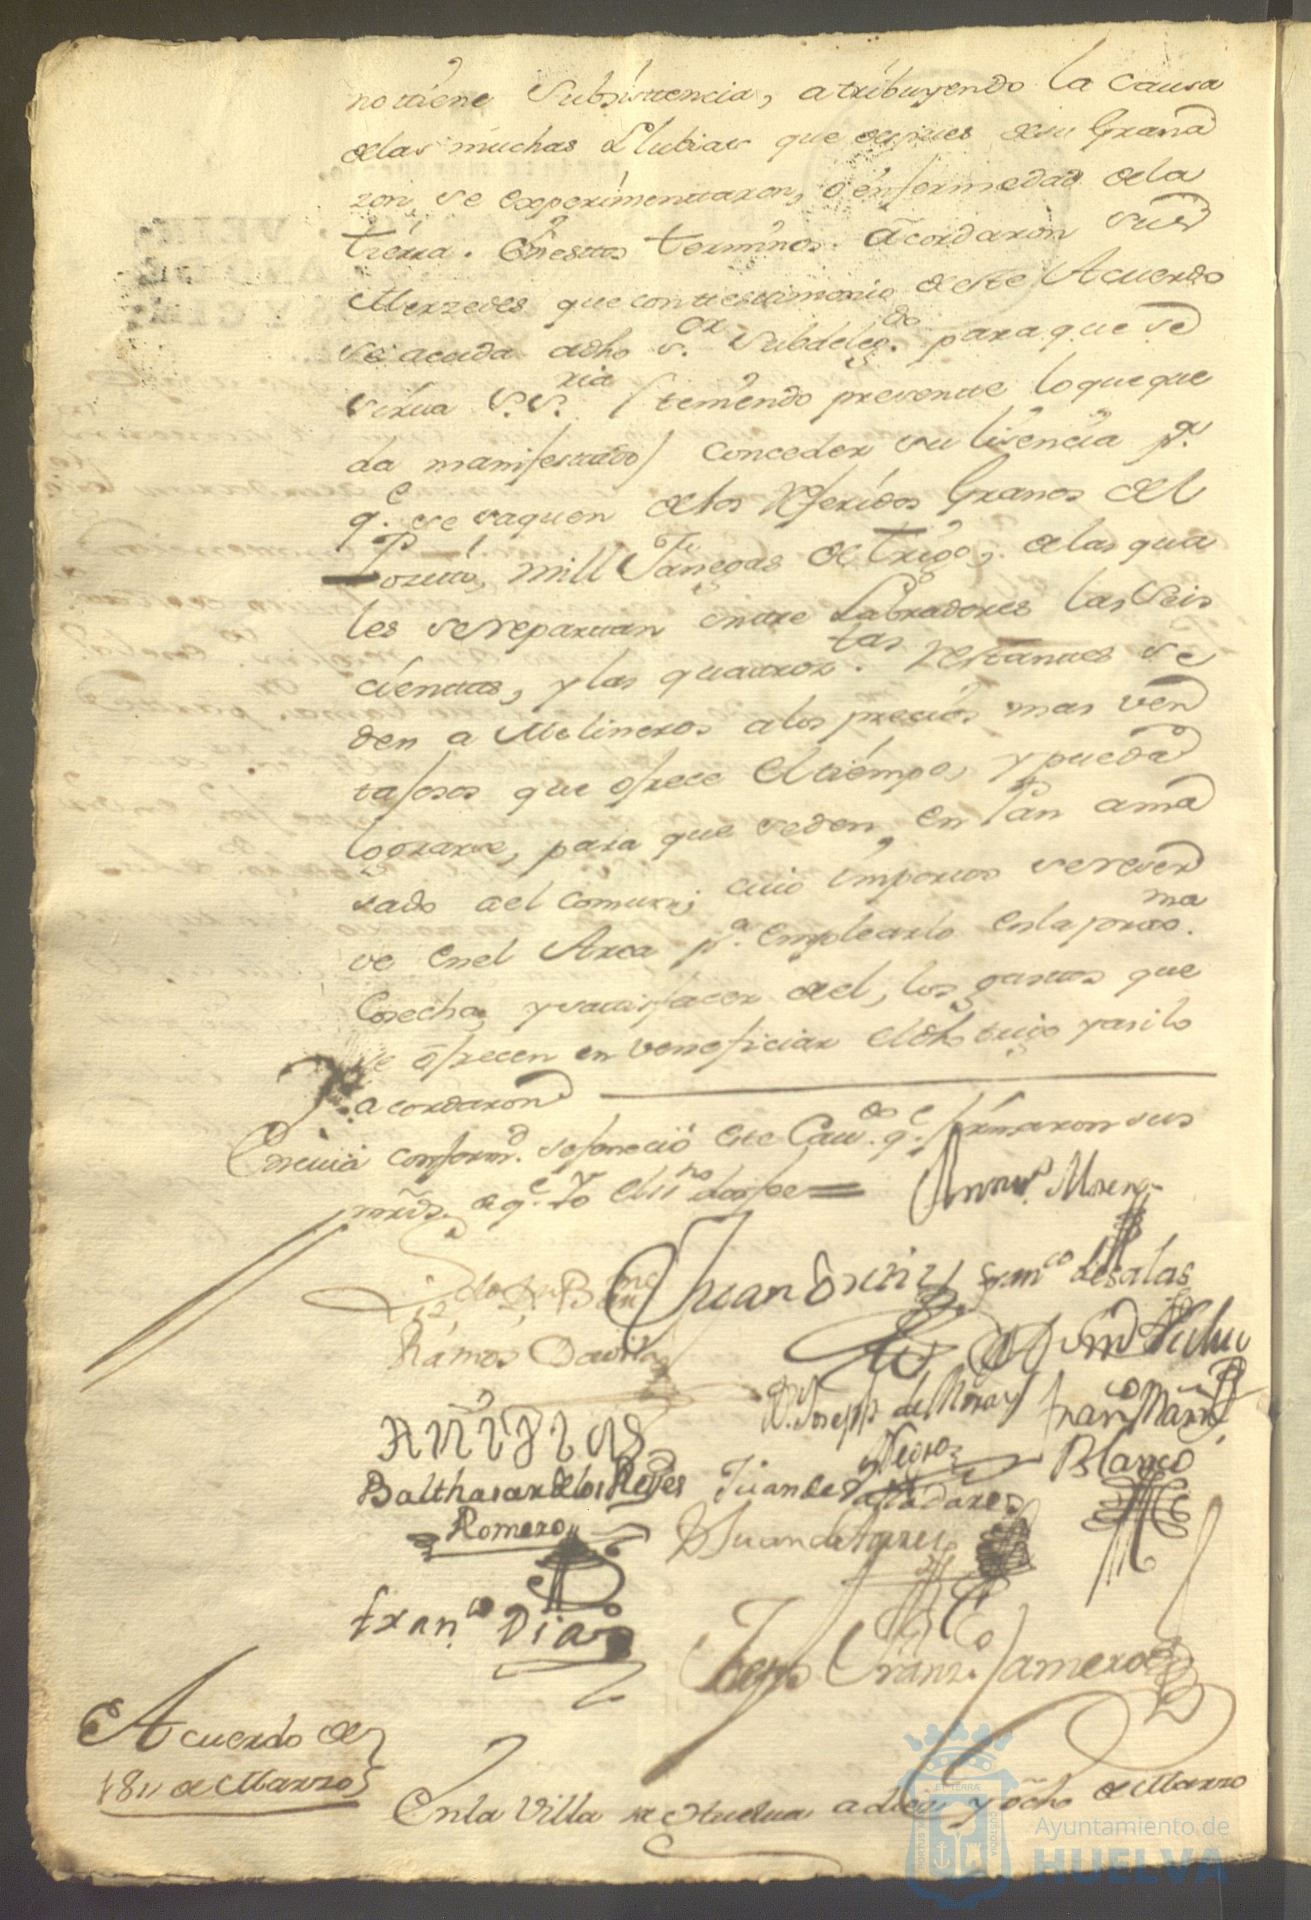 no tiene Subsistencia, atribuyendo la Causa
de las muchas Llubias que despues de su Grana
zon se experimentaron, o enfermedad de la
tierra. En estos terminos acordaron Sus
Merzedes que con testimonio de este Acuerdo
se acuda adho S.or Subdeleg.do para que se
sirva S.S.ria /teniendo presente lo que que
da manifestado/ Conceder su licencia p.a
q.e se saquen de los Referidos Granos del
Posito, mill fanegas de trigo, de las qua
les se repartan entre Labradores las Seis
cientas, y las quatroz.tas restantes se
den a Molineros a los precios mas ven
tajosos que ofrece el tiempo, y pueda
lograrse, para que se den en Pan ama
sado a el Comun; cuio importe se reser
ve en el Arca p.a emplearlo en la prox.ma
Cosecha, y satisfacer de el, los gastos que
se ofrecen en veneficiar el dho trigo y asi lo
acordaron
En cuia conform.d se feneció este Cav.do q.e firmaron sus
mrds. de q.e Yo el ss.no doi fe =
Moreno
Juan
Fran.co de Salas
Ramos Davila
D. Joseph de
Fran.co Martin
Negro
Blanco
Balthasar de los Reyes
Juan de Valladares
Romero
D. Juan de
Fran.co Diaz
Diego Franz.co Jamero
Acuerdo de
18 de Marzo
En la Villa de Huelva a diez y ocho de Marzo
ET TERRÆ
CUSTODIA
Ayuntamiento de
HUELVA